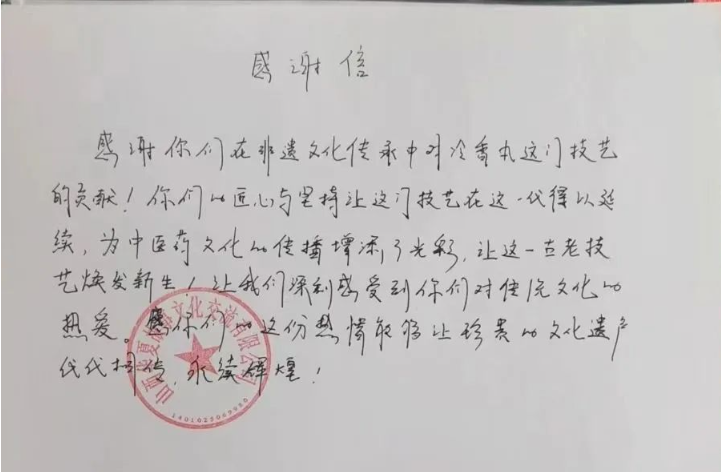 感谢信
感谢你们在非遗文化传承中对冷香丸这门技艺
的贡献！你们以匠心与坚持让这门技艺在这一代得以延
续，为中医药文化的传播增添了光彩，让这一古老技
艺焕发新生！让我们深刻感受到你们对传统文化的
热爱。愿你们的这份热情能够让珍贵的文化遗产
代代相传，永续辉煌！
文化交流有限公司